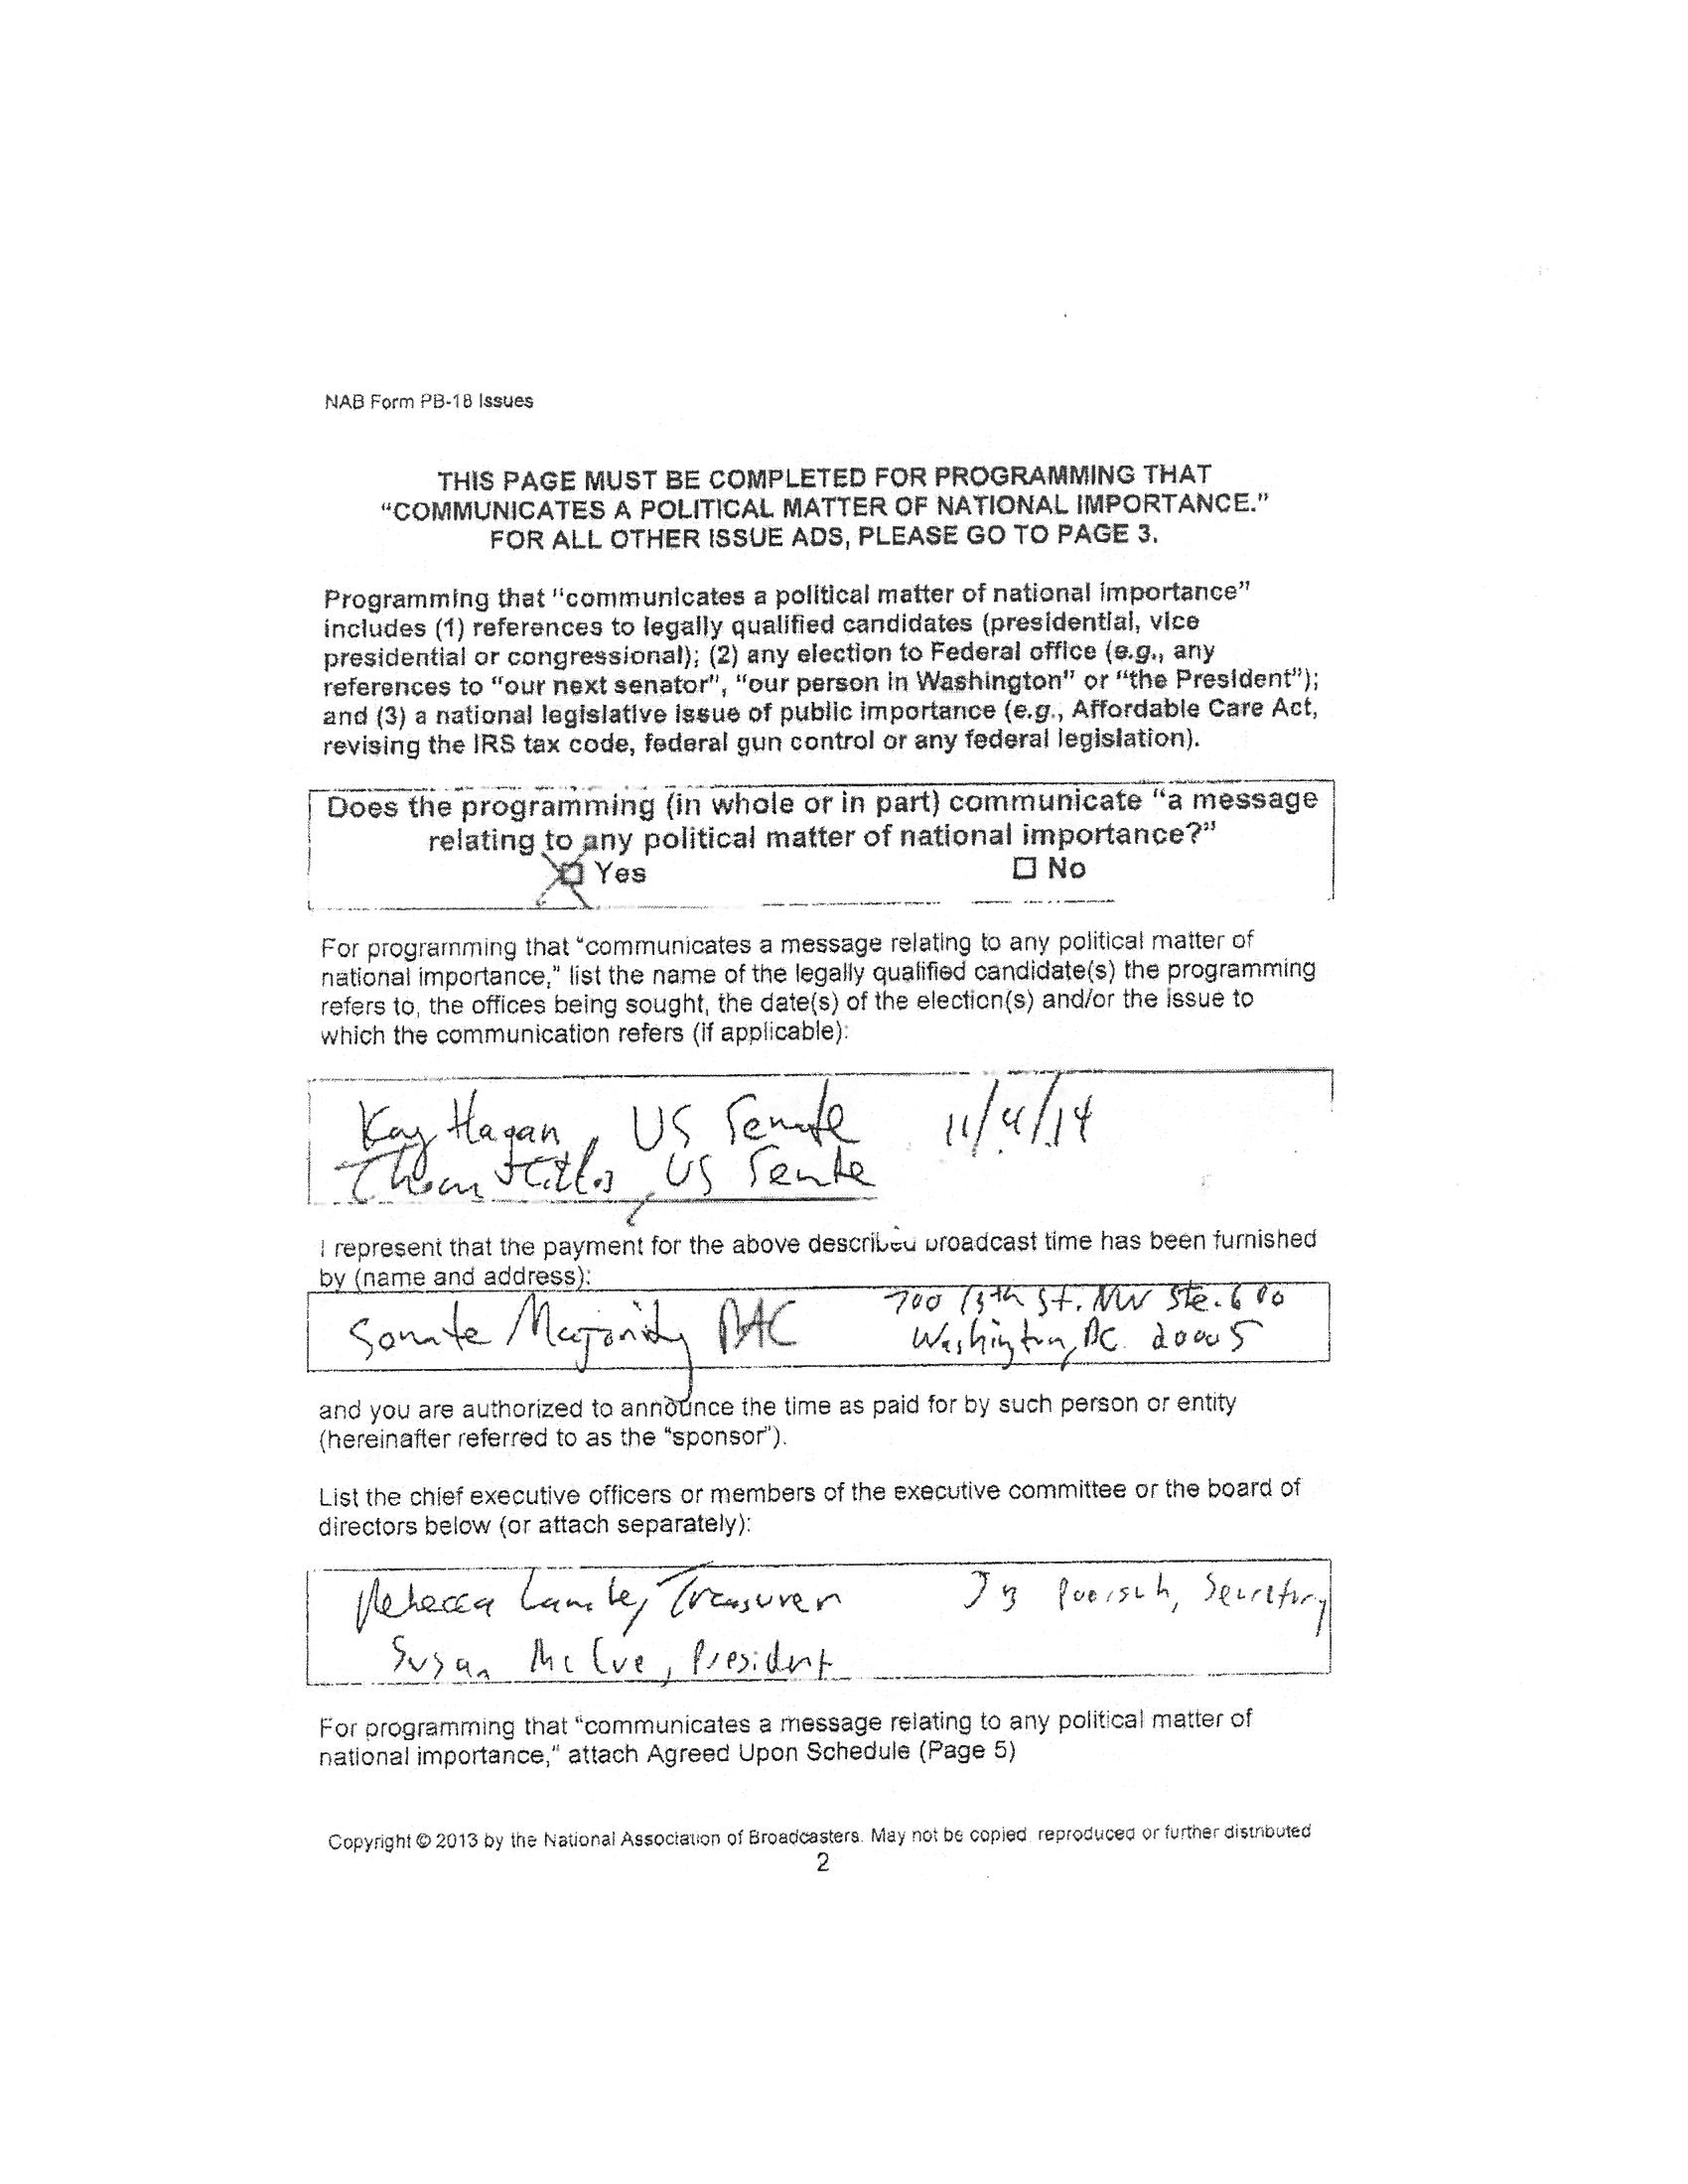 NAB Form PB-18 Issues
THIS PAGE MUST BE COMPLETED FOR PROGRAMMING THAT
“COMMUNICATES A POLITICAL MATTER OF NATIONAL IMPORTANCE.”
FOR ALL OTHER ISSUE ADS, PLEASE GO TO PAGE 3.
Programming that “communicates a political matter of national importance”
includes (1) references to legally qualified candidates (presidential, vice
presidential or congressional); (2) any election to Federal office (e.g., any
references to “our next senator”, “our person in Washington” or “the President”);
and (3) a national legislative issue of public importance (e.g., Affordable Care Act,
revising the IRS tax code, federal gun control or any federal legislation).
Does the programming (in whole or in part) communicate “a message
relating to any political matter of national importance?”
Yes No
For programming that “communicates a message relating to any political matter of
national importance,” list the name of the legally qualified candidate(s) the programming
refers to, the offices being sought, the date(s) of the election(s) and/or the issue to
which the communication refers (if applicable):
Kay Hagan, US Senate 11/4/14
Thom Tillis, US Senate
I represent that the payment for the above described broadcast time has been furnished
by (name and address):
Senate Majority PAC 700 13th St. NW Ste. 600
Washington, DC 20005
and you are authorized to announce the time as paid for by such person or entity
(hereinafter referred to as the “sponsor”).
List the chief executive officers or members of the executive committee or the board of
directors below (or attach separately):
Rebecca Lambe, Treasurer Poersch, Secretary
Susan McCue, President
For programming that “communicates a message relating to any political matter of
national importance,” attach Agreed Upon Schedule (Page 5)
Copyright © 2013 by the National Association of Broadcasters. May not be copied reproduced or further distributed
2